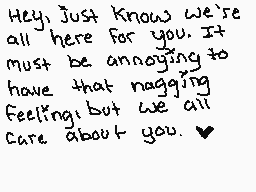 Hey, just know we're
all here for you. It
must be annoying to
have that nagging
feeling, but we all
care about you. ♥